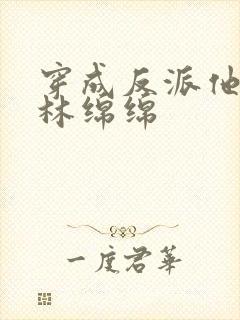 穿成反派他
林绵绵
一度君华